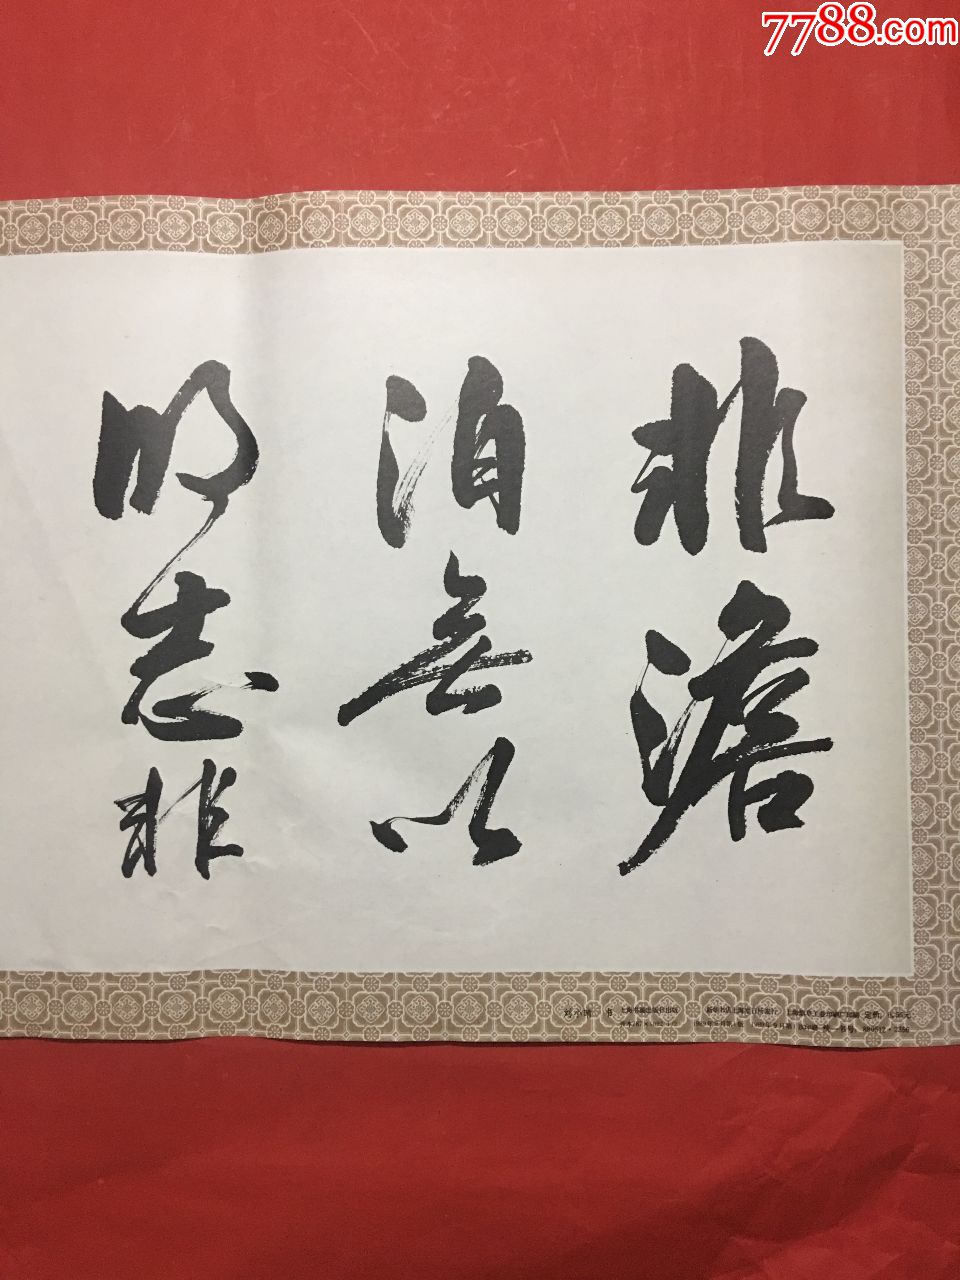 7788.com
非澹
泊無以
明志非
刘小晴 书 上海书画出版社出版 新华书店上海发行所发行 定价